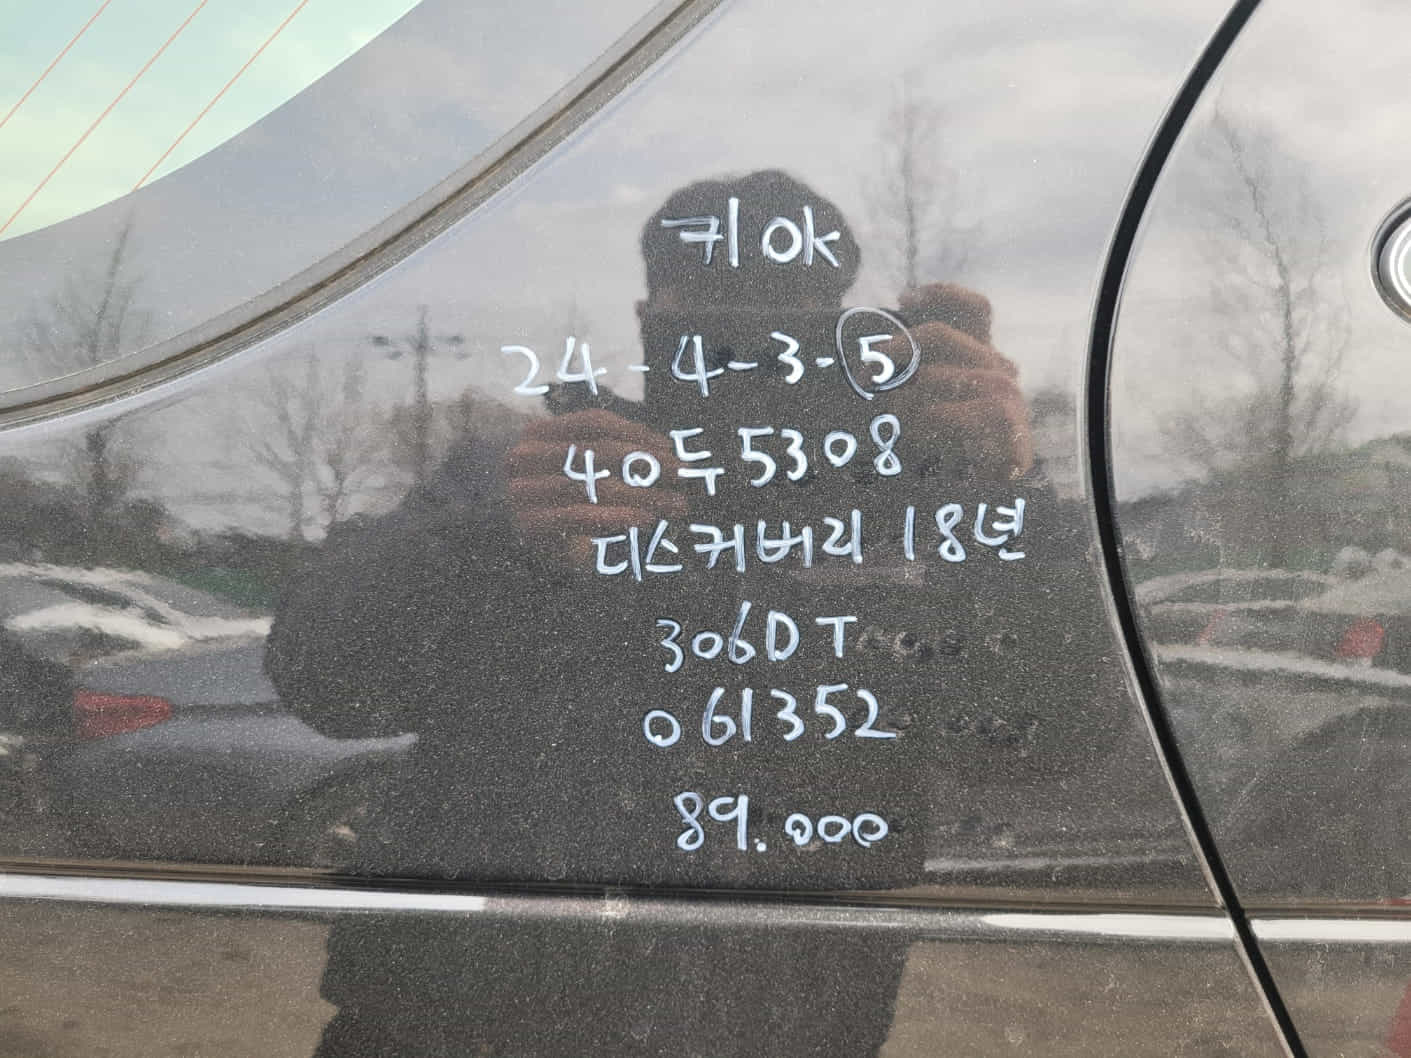 키 OK
24-4-3-5
40두5308
디스커버리 18년
306DT
061352
89.000